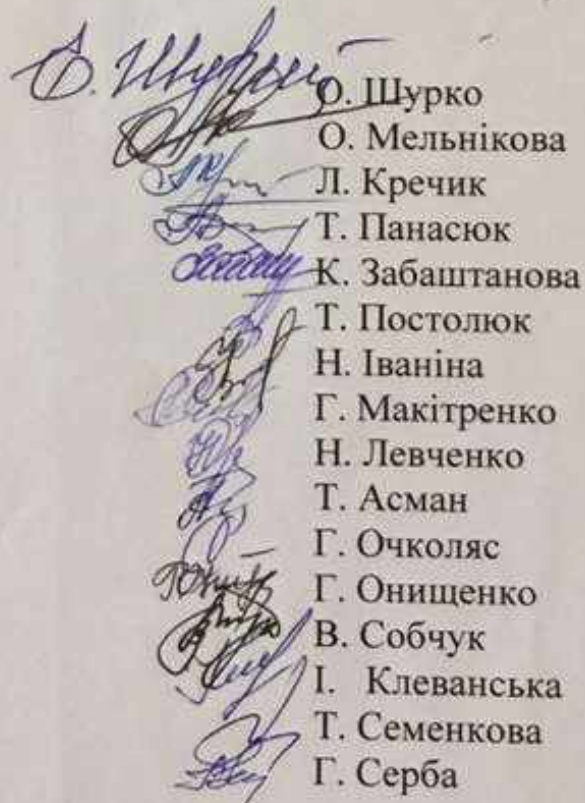 О. Шурко
О. Мельнікова
Л. Кречик
Т. Панасюк
К. Забаштанова
Т. Постолюк
Н. Іваніна
Г. Макітренко
Н. Левченко
Т. Асман
Г. Очколяс
Г. Онищенко
В. Собчук
І. Клеванська
Т. Семенкова
Г. Серба